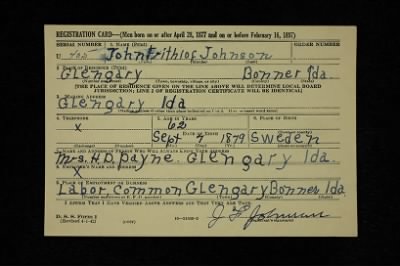 REGISTRATION CARD—(Men born on or after April 28, 1877 and on or before February 16, 1897)
SERIAL NUMBER 1. NAME (Print) ORDER NUMBER
U John Frithiof Johnson
2. PLACE OF RESIDENCE (Print)
Glengary Bonner Ida.
[THE PLACE OF RESIDENCE GIVEN ON THE LINE ABOVE WILL DETERMINE LOCAL BOARD
JURISDICTION; LINE 2 OF REGISTRATION CERTIFICATE WILL BE IDENTICAL]
3. MAILING ADDRESS
Glengary Ida
4. TELEPHONE 5. AGE IN YEARS 6. PLACE OF BIRTH
x 62
DATE OF BIRTH
Sept 9 1879 Sweden
7. NAME AND ADDRESS OF PERSON WHO WILL ALWAYS KNOW YOUR ADDRESS
Mrs. H.D. Payne. Glengary Ida.
8. EMPLOYER'S NAME AND ADDRESS
x
9. PLACE OF EMPLOYMENT OR BUSINESS
Labor, Common Glengary Bonner Ida
I AFFIRM THAT I HAVE VERIFIED ABOVE ANSWERS AND THAT THEY ARE TRUE.
D. S. S. Form 1
(Revised 4-1-42) (over)
J F Johnson